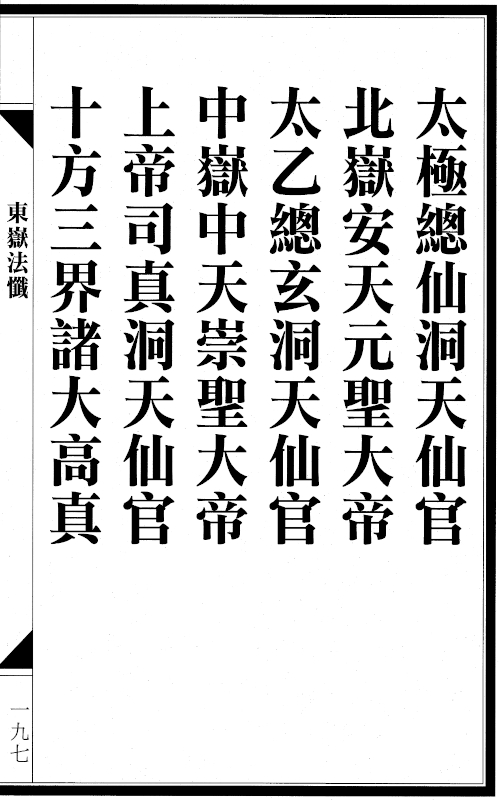 太極總仙洞天仙官
北嶽安天元聖大帝
太乙總玄洞天仙官
中嶽中天崇聖大帝
上帝司真洞天仙官
十方三界諸大高真
東嶽法懺
一九七